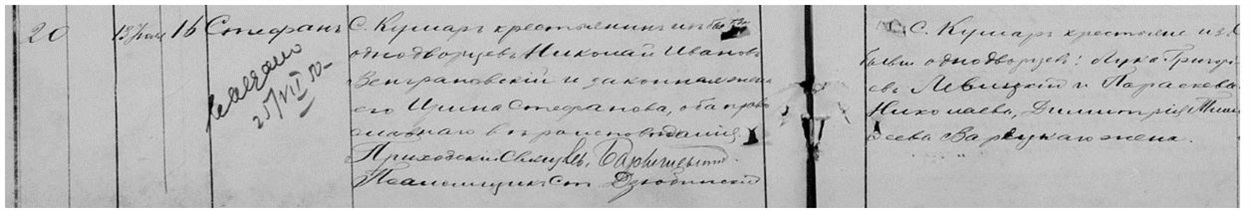 20 13 Іюля 16 Стефанъ
25/VII 50
С. Кушаръ крестьянинъ изъ
однодворцевъ Николай Ивановъ
Венграновскій и законная жена
его Ирина Стефанова, оба право
славнаго вѣроисповѣданія.
Приходскій Свящ.
Псаломщикъ Ст. Дзюбинскій
С. Кушаръ крестьяне изъ
бывш. однодворцевъ: Лука Григорь
евъ Левицкій и Параскева
Николаева, Димитрія
жена.